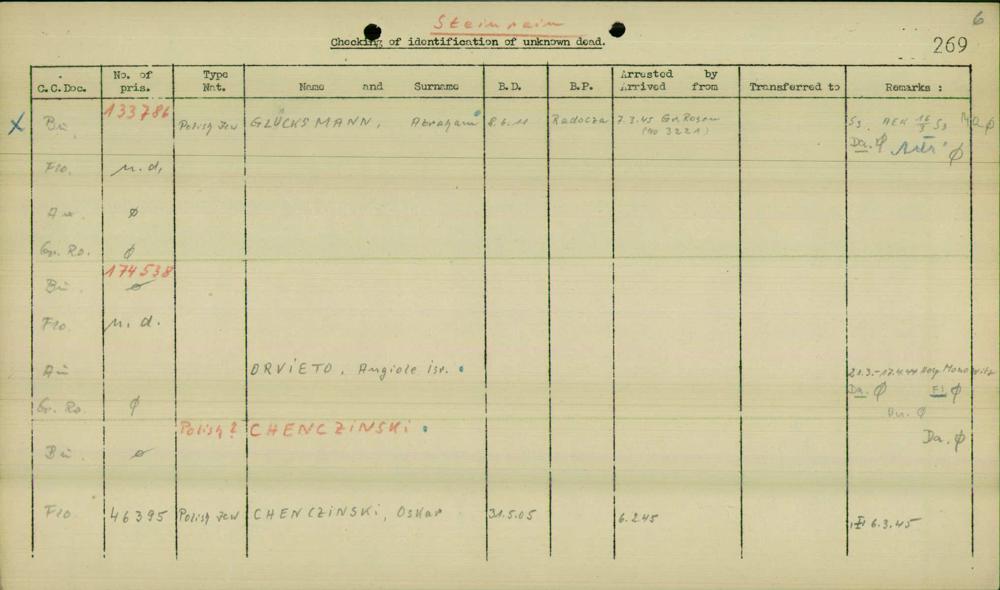 6
Steinrain
Checking of identification of unknown dead.
269
C.C.Doc. No. of pris. Type Nat. Name and Surname B.D. B.P. Arrested by Arrived from Transferred to Remarks :
133786
x Bu. Polish Jew GLÜCKSMANN, Abraham 8.6.11 Radocza 7.3.45 Gr. Rosen
(No 3221)
Da. ϕ
Flo. n.d.
Au. ϕ
Gr. Ro. ϕ
174538
Bu. ϕ
Flo. n.d.
Au ORVIETO, Angiole isr. 21.3.-17.4.44
Da. ϕ Fl ϕ
Gr. Ro. ϕ Bu. ϕ
Polish? CHENCZINSKI.
Bu. ϕ Da. ϕ
Flo. 46395 Polish Jew CHENCZINSKI, Oskar 31.5.05 6.2.45 6.3.45